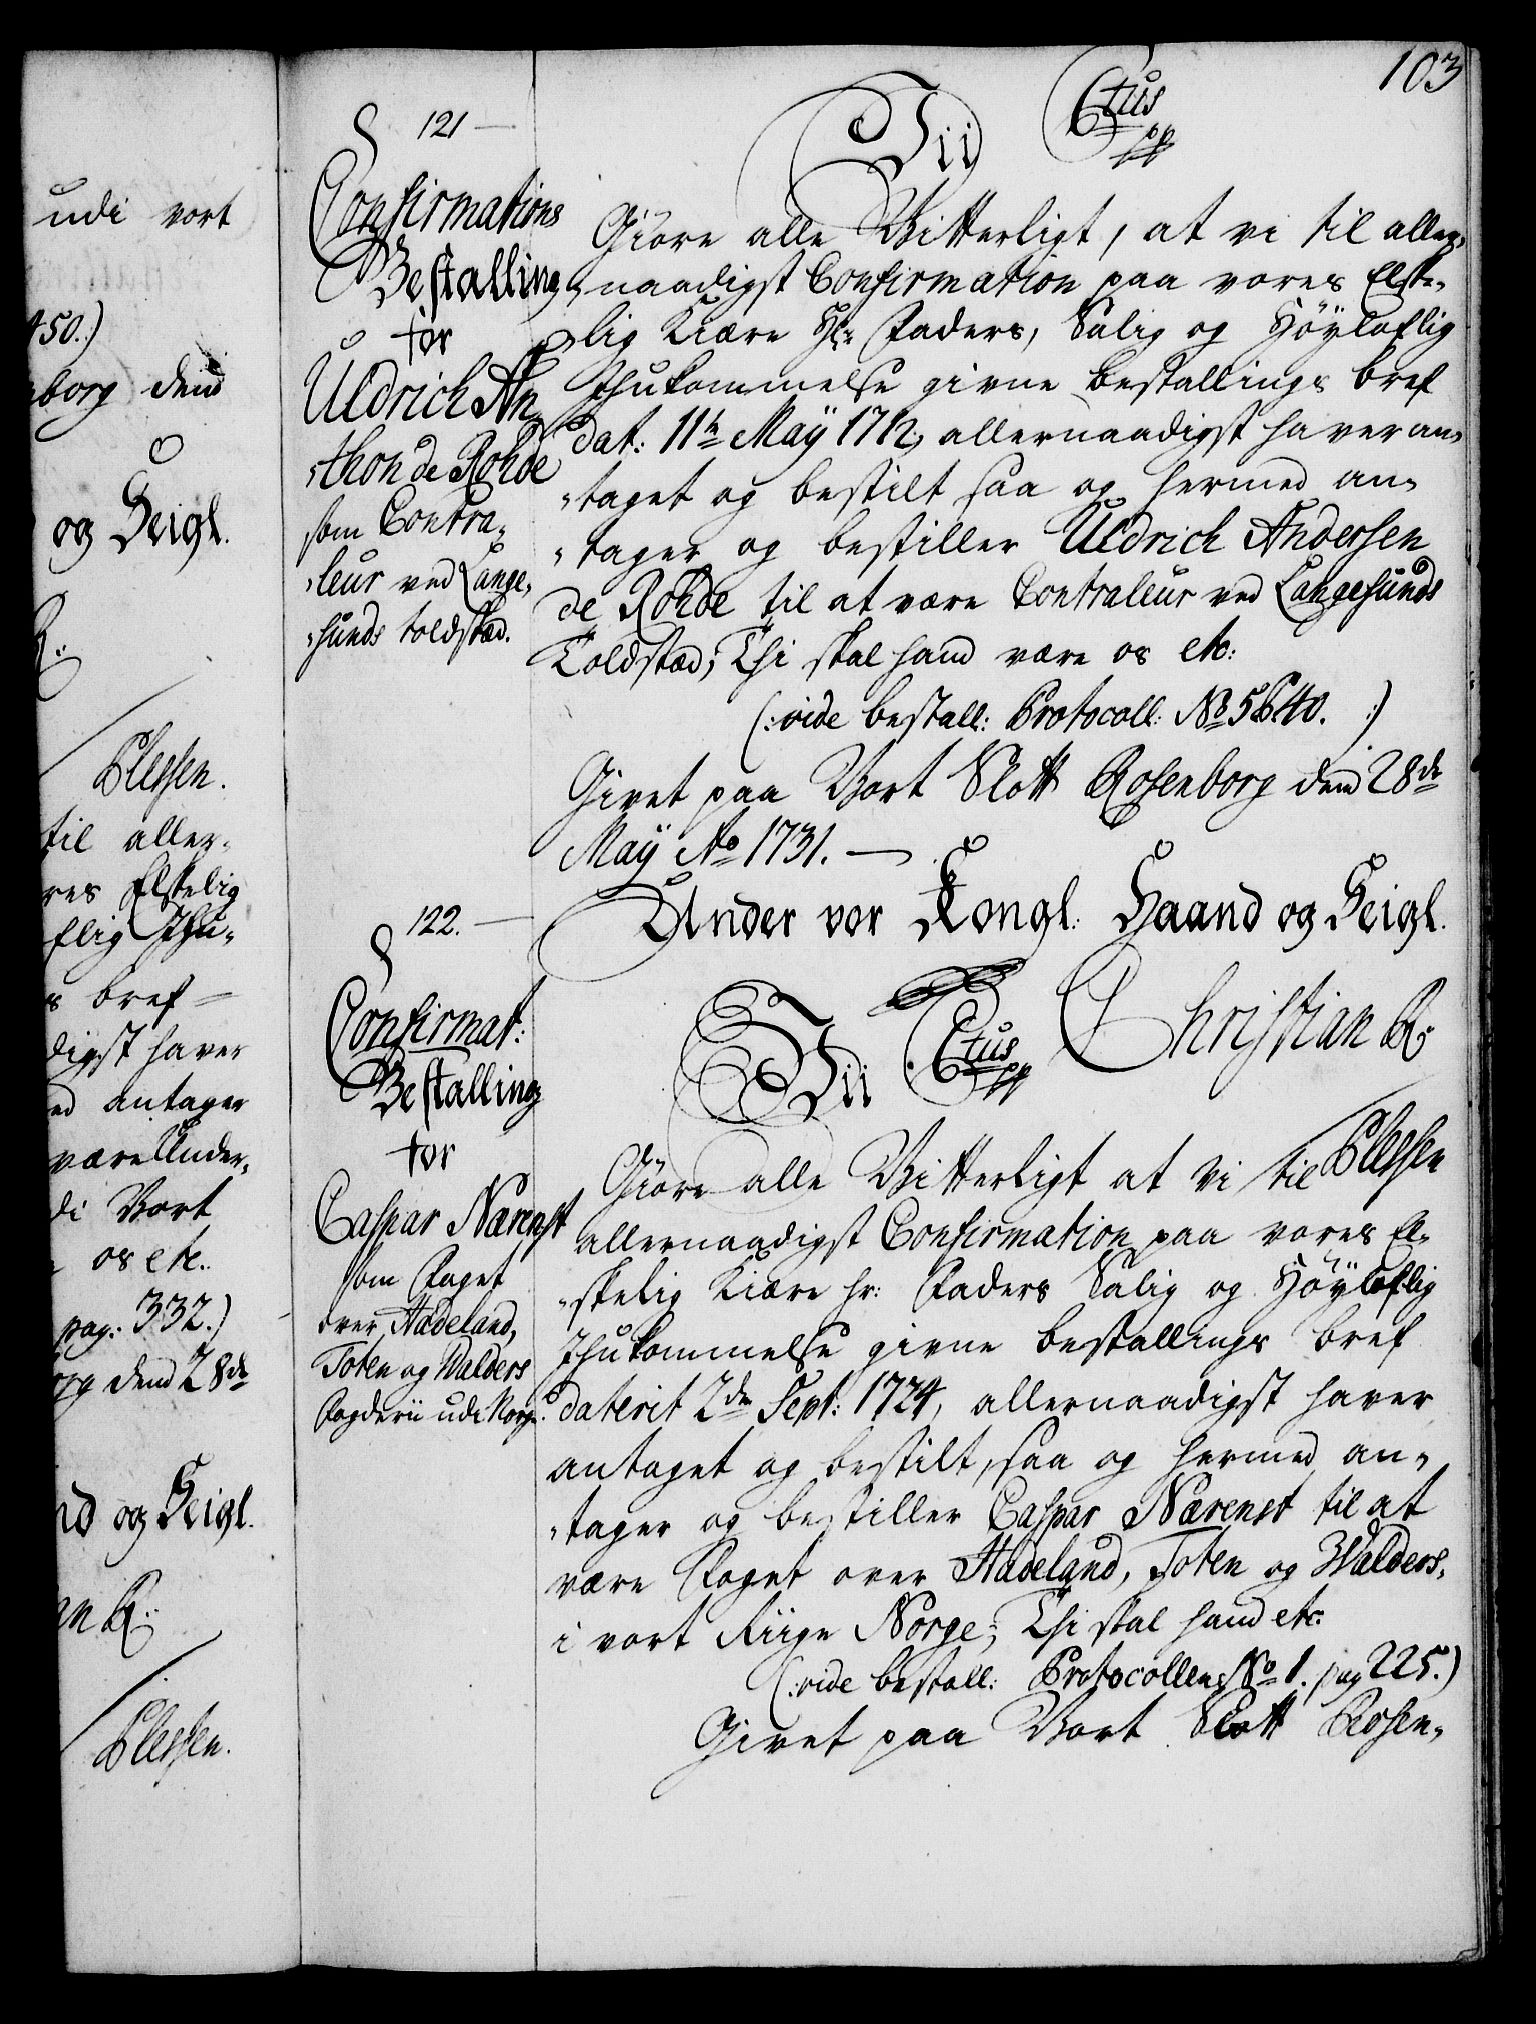 udi vort
450.)
borg dend
og Seigl.
R.
Plessen.
til aller-
res Elskelig
flig Ihu-
s bref
digst haver
ed antager
være Under-
di Vort
os etc.
pag: 332.)
org dend 28de
nd og Seigl.
an R.
Plessen.
103
§ 121
Confirmations
Bestalling
for
Uldrich An-
-thon de Rohde
som Contra-
-leur ved Lange-
-sunds toldsted.
Vii Ctus pp
Giøre alle Vitterligt, at vi til aller-
-naadigst Confirmation paa vores Elske-
-lig Kiære Hr: Faders, Salig og Høyloflig
Ihukommelse givne bestallings bref
dat: 11te Maÿ 1712, allernaadigst haver an-
-taget og bestilt saa og hermed an-
-tager og bestiller Uldrich Andersen
de Rohde til at være Contraleur ved Langesunds
Toldsted; Thi skal hand være os etc:
(:vide bestall: Protocoll: No 5640. :)
Givet paa Vort Slott Rosenborg dend 28de
Maÿ Ao 1731.
Under vor Kongl: Haand og Seigl.
Christian R.
Plessen
§ 122.
Confirmat:
Bestalling
for
Caspar Nærenst
som Foget
over Hadeland,
Toten og Walders
Fogderii udi Norge.
Vii Ctus pp
Giøre alle Vitterligt at Vi til
allernaadigst Confirmation paa vores El-
-skelig Kiære hr: Faders Salig og Høyloflig
Ihukommelse givne bestallings bref
daterit 2den Sept: 1724, allernaadigst haver
antaget og bestilt, saa og hermed an-
-tager og bestiller Caspar Nærenst til at
være Foget over Hadeland, Toten og Walders,
i vort Riige Norge; Thi skal hand etc.
(:vide bestall: Protocollens No 1. pag 225.)
Givet paa Vort Slott Rosen-